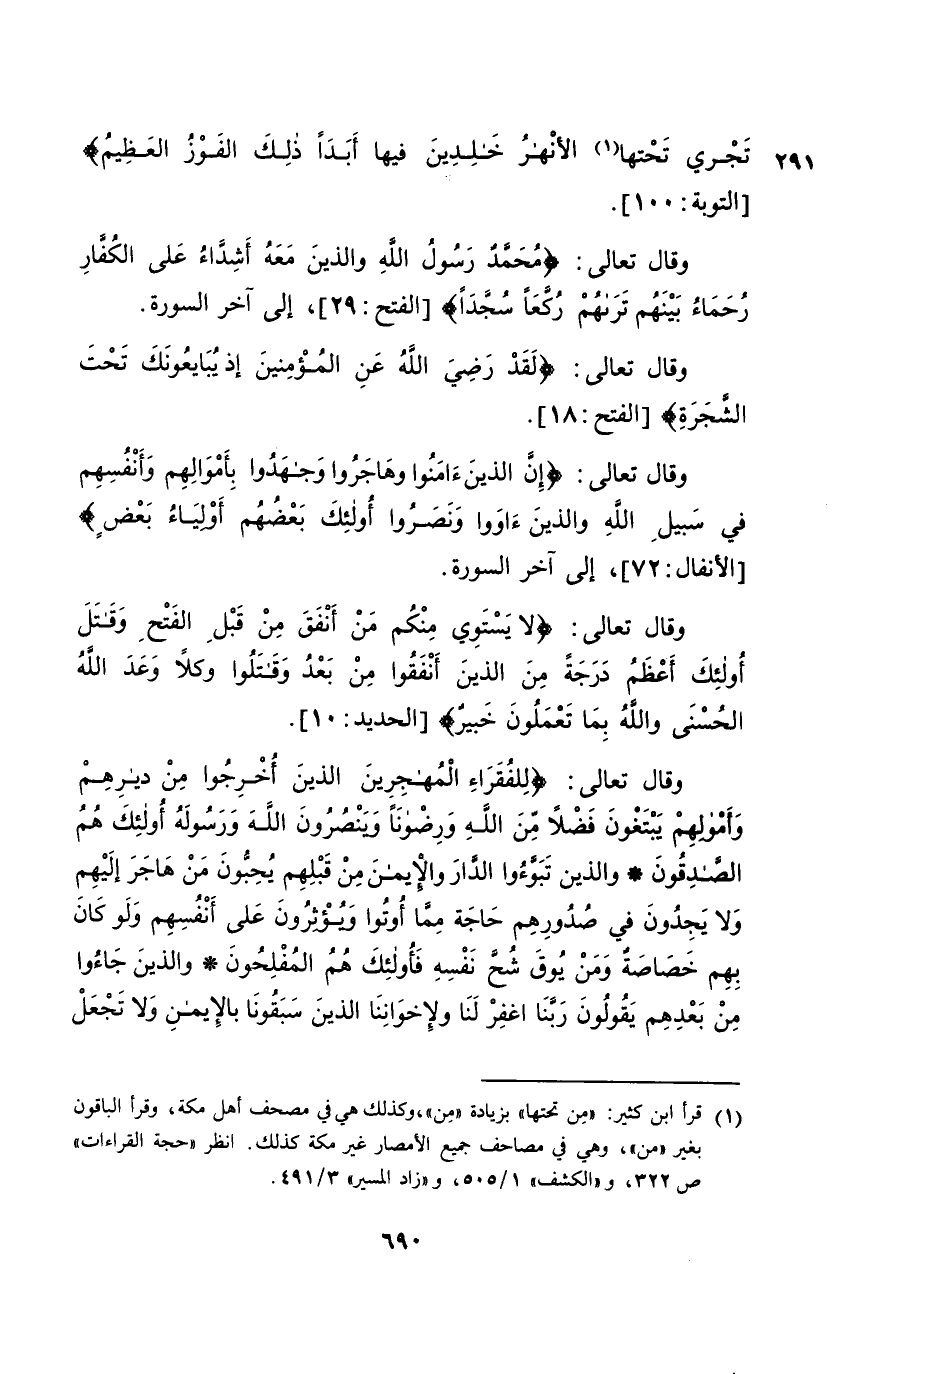 ٢٩١ تَجْري تَحْتها(١) الأنْهٰرُ خَـٰلِدِينَ فيها أَبَدَاً ذٰلِكَ الفَوْزُ العَظِيمُ﴾
[التوبة: ١٠٠].
وقال تعالى: ﴿مُحَمَّدٌ رَسُولُ اللَّهِ والذينَ مَعَهُ أَشِدَّاءُ عَلى الكُفَّارِ
رُحَمَاءُ بَيْنَهُم تَرَىٰهُمْ رُكَّعَاً سُجَّدَاً﴾ [الفتح: ٢٩]، إلى آخر السورة.
وقال تعالى: ﴿لَقَدْ رَضِيَ اللَّهُ عَنِ المُؤْمِنينَ إذ يُبَايعُونَكَ تَحْتَ
الشَّجَرَةِ﴾ [الفتح: ١٨].
وقال تعالى: ﴿إنَّ الذينَ ءَامَنُوا وهَاجَرُوا وَجَـٰهَدُوا بِأمْوَالِهِم وَأَنْفُسِهِم
في سَبيلِ اللَّهِ والذينَ ءَاوَوا وَنَصَرُوا أُولٰئِكَ بَعْضُهُم أَوْلِيَاءُ بَعْضٍ﴾
[الأنفال: ٧٢]، إلى آخر السورة.
وقال تعالى: ﴿لا يَسْتَوِي مِنْكُم مَنْ أَنْفَقَ مِنْ قَبْلِ الفَتْحِ وَقَـٰتَلَ
أُولٰئِكَ أَعْظَمُ دَرَجَةً مِنَ الذينَ أَنْفَقُوا مِنْ بَعْدُ وَقَـٰتَلُوا وكلاً وَعَدَ اللَّهُ
الحُسْنَى واللَّهُ بِمَا تَعْمَلُونَ خَبيرٌ﴾ [الحديد: ١٠].
وقال تعالى: ﴿لِلفُقَرَاءِ الْمُهـٰجِرِينَ الذينَ أُخْرِجُوا مِنْ ديـٰرِهِمْ
وَأَمْوٰلِهِمْ يَبْتَغْونَ فَضْلاً مِّنَ اللَّهِ وَرِضْوٰنَاً وَيَنْصُرُونَ اللَّهَ وَرَسُولَهُ أُولٰئِكَ هُمُ
الصَّـٰدِقُونَ * والذين تَبَوَّءُوا الدَّارَ والْإيمـٰنَ مِنْ قَبْلِهِم يُحِبُّونَ مَنْ هَاجَرَ إلَيْهِم
وَلا يَجِدُونَ في صُدُورِهِم حَاجَة مِمَّا أُوتُوا وَيُؤْثِرُونَ عَلى أَنْفُسِهِم وَلَو كَانَ
بِهِم خَصَاصَةٌ وَمَنْ يُوقَ شُحَّ نَفْسِهِ فَأُولٰئِكَ هُمُ المُفْلِحُونَ * والذينَ جَاءُوا
مِنْ بَعْدِهِم يَقُولُونَ رَبَّنَا اغفِرْ لَنَا ولإخوَانِنَا الذينَ سَبَقُونَا بالإيمـٰنِ وَلا تَجْعَلْ
(١) قرأ ابن كثير: «مِن تحتها» بزيادة «مِن»، وكذلك هي في مصحف أهل مكة، وقرأ الباقون
بغير «من»، وهي في مصاحف جميع الأمصار غير مكة كذلك. انظر «حجة القراءات»
ص ٣٢٢، و«الكشف» ٥٠٥/١، و«زاد المسير» ٤٩١/٣.
٦٩٠